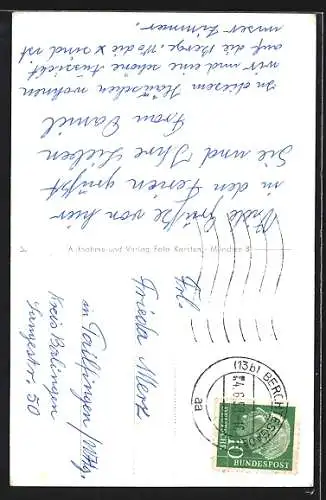 Viele Grüße von hier
in den Ferien grüßt
Sie und Ihre Lieben
Frau Daniel
In diesem Häuschen wohnen
wir und eine schöne Aussicht
auf die Berge. Wo die x sind ist
unser Zimmer.
Aufnahme und Verlag Foto Kersten, München 8
Frl.
Frieda Merz
in Tailfingen/Wttg.
Kreis Balingen
Langestr. 50
(13b) BERCHTESGADEN
aa
10
DEUTSCHE
BUNDESPOST